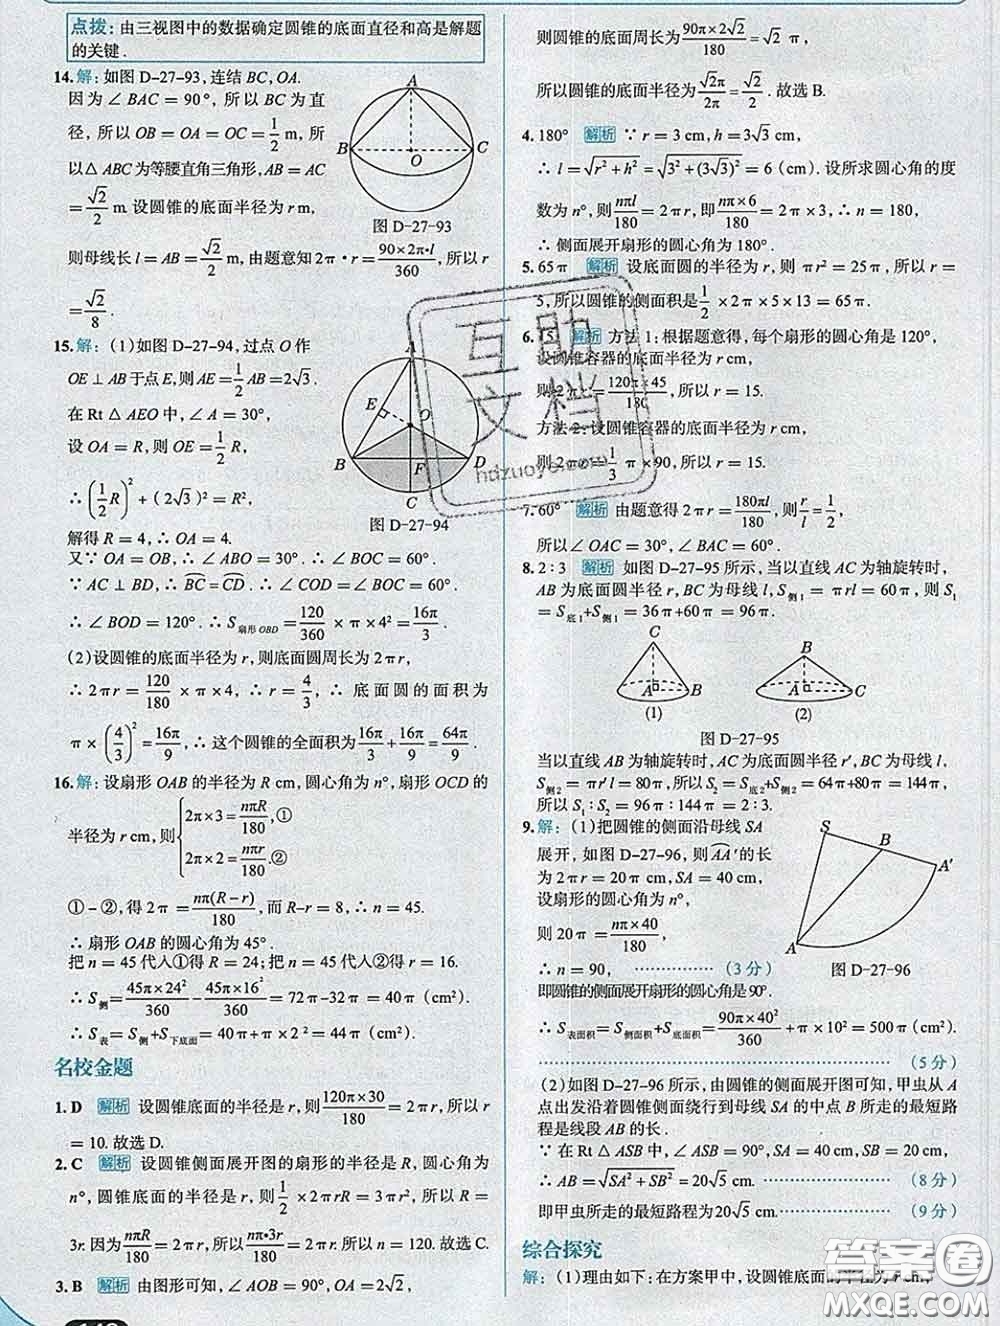 点拨：由三视图中的数据确定圆锥的底面直径和高是解题
的关键.
14.解：如图 D-27-93，连结 BC，OA.
因为∠BAC＝90°，所以 BC 为直
径，所以 OB＝OA＝OC＝1/2 m，所
以△ABC 为等腰直角三角形，AB＝AC
＝√2/2 m. 设圆锥的底面半径为 r m，
A
B
O
C
图 D-27-93
则母线长 l＝AB＝√2/2 m，由题意知 2π·r＝90×2π·l/360，所以 r
＝√2/8.
15.解：（1）如图 D-27-94，过点 O 作
OE⊥AB 于点 E，则 AE＝1/2 AB＝2√3.
在 Rt△AEO 中，∠A＝30°，
设 OA＝R，则 OE＝1/2 R，
∴(1/2 R)²＋(2√3)²＝R²，
解得 R＝4，∴OA＝4.
A
E
O
B
F
D
C
图 D-27-94
又∵OA＝OB，∴∠ABO＝30°.∴∠BOC＝60°.
∵AC⊥BD，∴BC＝CD.∴∠COD＝∠BOC＝60°.
∴∠BOD＝120°.∴S扇形OBD＝120/360×π×4²＝16π/3.
（2）设圆锥的底面半径为 r，则底面圆周长为 2πr，
∴2πr＝120/180×π×4，∴r＝4/3，∴底面圆的面积为
π×(4/3)²＝16π/9，∴这个圆锥的全面积为16π/3＋16π/9＝64π/9.
16.解：设扇形 OAB 的半径为 R cm，圆心角为 n°，扇形 OCD 的
半径为 r cm，则{2π×3＝nπR/180，①
2π×2＝nπr/180.②
①－②，得 2π＝nπ(R－r)/180，而 R－r＝8，∴n＝45.
∴扇形 OAB 的圆心角为 45°.
把 n＝45 代入①得 R＝24；把 n＝45 代入②得 r＝16.
∴S侧＝45π×24²/360－45π×16²/360＝72π－32π＝40π（cm²）.
∴S表＝S侧＋S下底面＝40π＋π×2²＝44π（cm²）.
名校金题
1.D 解析 设圆锥底面的半径是 r，则120π×30/180＝2πr，所以 r
＝10.故选 D.
2.C 解析 设圆锥侧面展开图的扇形的半径是 R，圆心角为
n°，圆锥底面的半径是 r，则1/2×2πrR＝3πr²，所以 R＝
3r.因为nπR/180＝2πr，所以nπ·3r/180＝2πr，所以 n＝120.故选 C.
3.B 解析 由图形可知，∠AOB＝90°，OA＝2√2，
则圆锥的底面周长为90π×2√2/180＝√2π，
所以圆锥的底面半径为√2π/2π＝√2/2.故选 B.
4.180° 解析 ∵r＝3 cm，h＝3√3 cm，
∴l＝√(r²＋h²)＝√(3²＋(3√3)²)＝6（cm）.设所求圆心角的度
数为 n°，则nπl/180＝2πr，即nπ×6/180＝2π×3，∴n＝180，
∴侧面展开扇形的圆心角为 180°.
5.65π 解析 设底面圆的半径为 r，则 πr²＝25π，所以 r＝
5，所以圆锥的侧面积是1/2×2π×5×13＝65π.
6.15 解析 方法 1：根据题意得，每个扇形的圆心角是 120°，
设圆锥容器的底面半径为 r cm，
则 2πr＝120π×45/180，所以 r＝15.
方法 2：设圆锥容器的底面半径为 r cm，
则 2πr＝1/3π×90，所以 r＝15.
7.60° 解析 由题意得 2πr＝180πl/180，则r/l＝1/2，
所以∠OAC＝30°，∠BAC＝60°.
8.2∶3 解析 如图 D-27-95 所示，当以直线 AC 为轴旋转时，
AB 为底面圆半径 r，BC 为母线 l，S侧1＝πrl＝60π，则 S1
＝S底1＋S侧1＝36π＋60π＝96π.
C
A
B
（1）
B
A
C
（2）
图 D-27-95
当以直线 AB 为轴旋转时，AC 为底面圆半径 r′，BC 为母线 l.
S侧2＝πr′l＝80π，所以 S2＝S底2＋S侧2＝64π＋80π＝144π，
所以 S1∶S2＝96π∶144π＝2∶3.
9.解：（1）把圆锥的侧面沿母线 SA
展开，如图 D-27-96，则AA′的长
为 2π×10＝20π cm，SA＝40 cm，
设扇形的圆心角为 n°，
则 20π＝nπ×40/180，
∴n＝90，……（3 分）
S
B
A′
A
图 D-27-96
即圆锥的侧面展开扇形的圆心角是 90°.
∴S表面积＝S侧面积＋S底面积＝90π×40²/360＋π×10²＝500π（cm²）.
……（5 分）
（2）如图 D-27-96 所示，由圆锥的侧面展开图可知，甲虫从 A
点出发沿着圆锥侧面绕行到母线 SA 的中点 B 所走的最短路
程是线段 AB 的长.
∵在 Rt△ASB 中，∠ASB＝90°，SA＝40 cm，SB＝20 cm，
∴AB＝√(SA²＋SB²)＝20√5 cm.……（8 分）
即甲虫所走的最短路程为 20√5 cm.……（9 分）
综合探究
解：（1）理由如下：在方案甲中，设圆锥底面的半径为 r cm，
互助文档
hdzuoye.com
答案圈
MXQE.COM